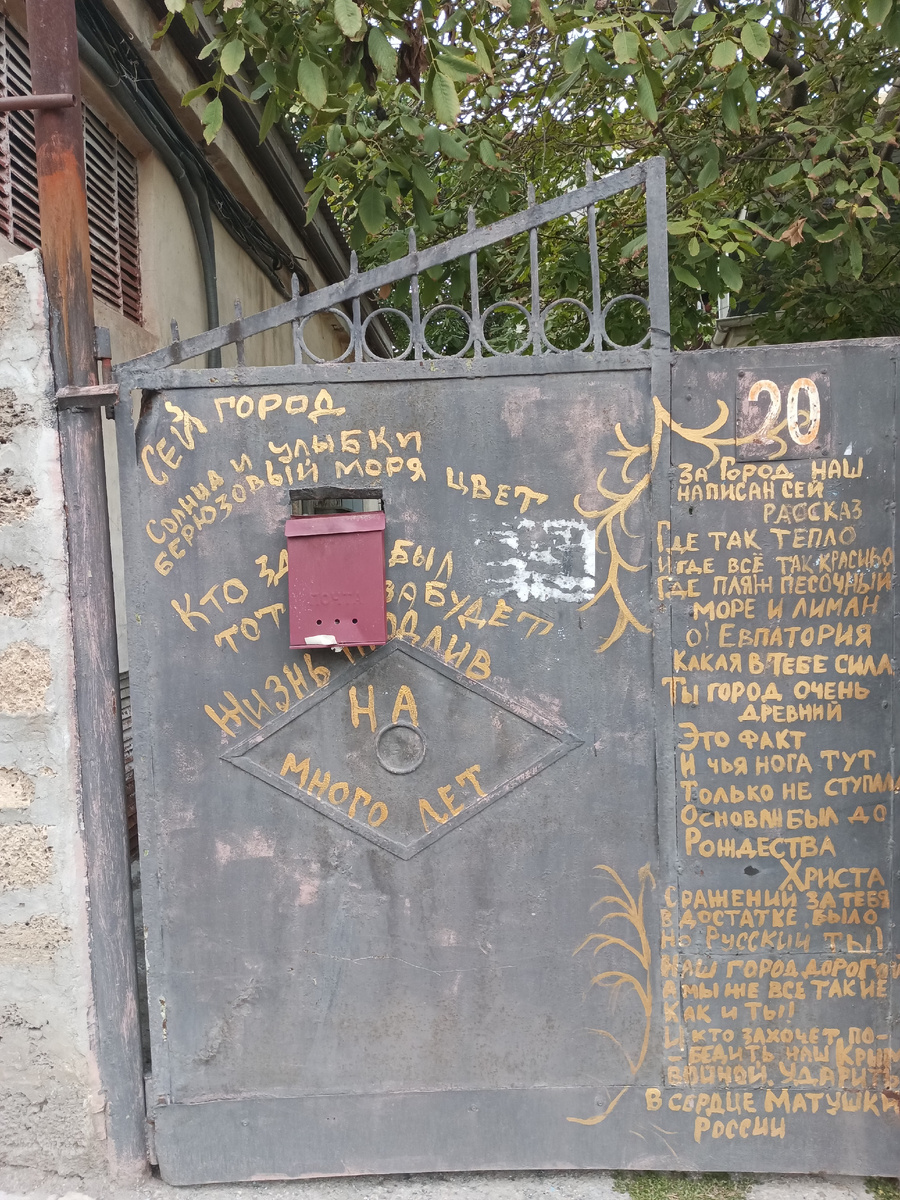 СЕЙ ГОРОД
СОЛНЦА И УЛЫБКИ
БЕРЮЗОВЫЙ МОРЯ ЦВЕТ
КТО БЫЛ
ТОТ ЗАБУДЕТ
ЖИЗНЬ
НА
МНОГО ЛЕТ
ПОЧТА
20
ЗА ГОРОД НАШ
НАПИСАН СЕЙ
РАССКАЗ
ГДЕ ТАК ТЕПЛО
И ГДЕ ВСЁ ТАК КРАСИВО
ГДЕ ПЛЯЖ ПЕСОЧНЫЙ
МОРЕ И ЛИМАН
О! ЕВПАТОРИЯ
КАКАЯ В ТЕБЕ СИЛА
ТЫ ГОРОД ОЧЕНЬ
ДРЕВНИЙ
ЭТО ФАКТ
И ЧЬЯ НОГА ТУТ
ТОЛЬКО НЕ СТУПАЛА
ОСНОВАН БЫЛ ДО
РОЖДЕСТВА
ХРИСТА
СРАЖЕНИЙ ЗА ТЕБЯ
В ДОСТАТКЕ БЫЛО
НО РУССКИЙ ТЫ!
НАШ ГОРОД ДОРОГОЙ
А МЫ ЖЕ ВСЕ ТАКИЕ
КАК И ТЫ!
И КТО ЗАХОЧЕТ ПО-
-БЕДИТЬ НАШ КРЫМ
ВОЙНОЙ УДАРИТЬ
В СЕРДЦЕ МАТУШКИ
РОССИИ